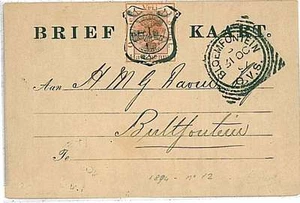 BRIEF KAART.
BLOEMFONTEIN
31 OC
O.V.S.
Aan H M G
Bultfontein
To
1894 - no 12